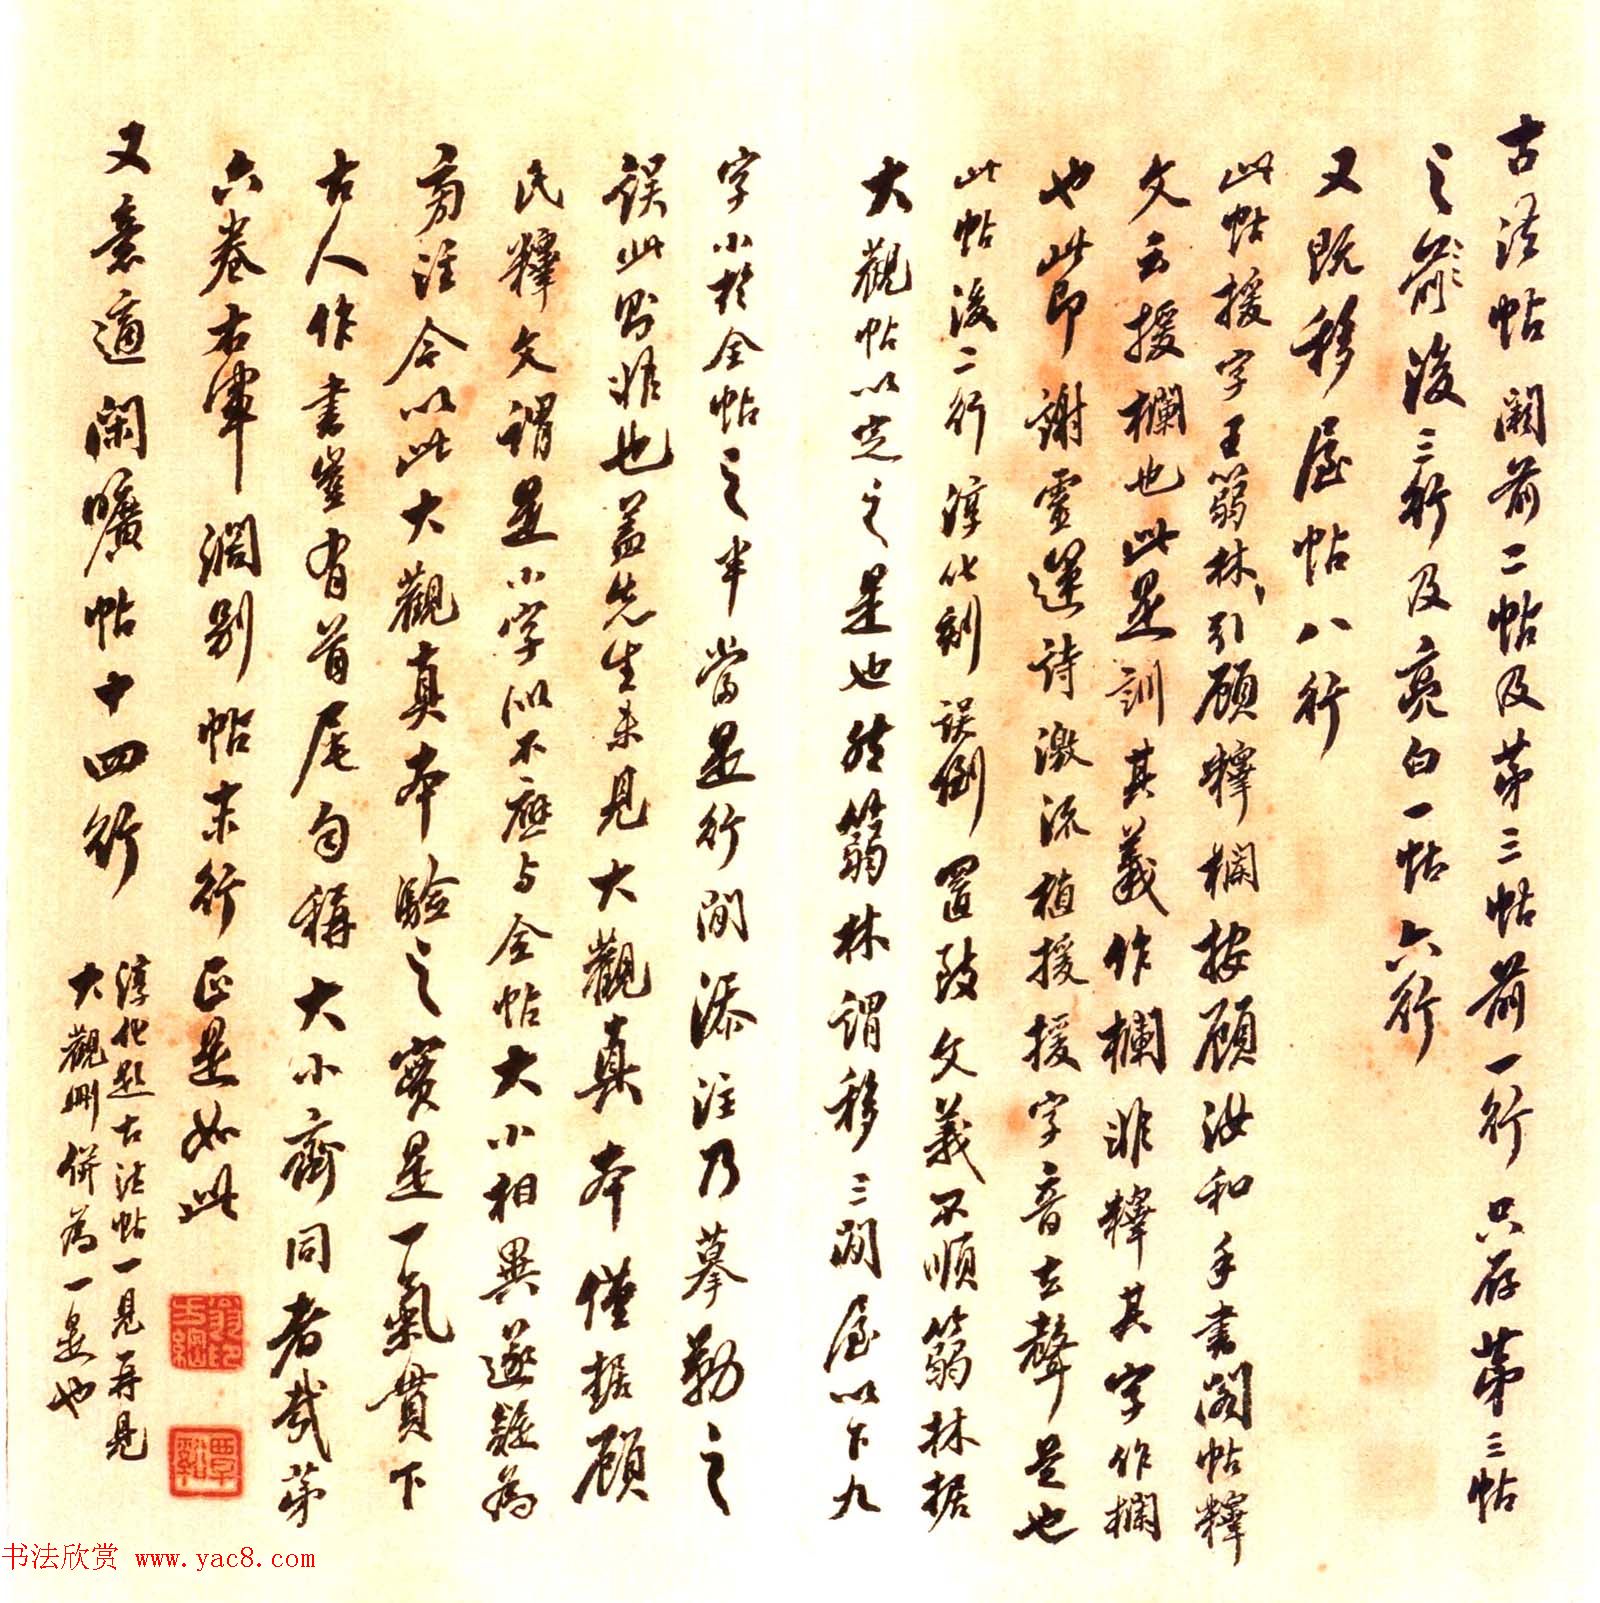 古法帖闕前二帖及第三帖前一行只存第三帖
之前後三行及亮白一帖六行
又既移屋帖八行
此帖援字王蒻林引顧釋欄按顧汝和手書閣帖釋
文云援欄也此是訓其義作欄非釋其字作欄
也此即謝靈運詩激流植援援字音去聲是也
此帖後二行淳化刻誤倒置致文義不順蒻林據
大觀帖以定之是也然蒻林謂移三間屋以下九
字小於全帖之半當是行間添注乃摹勒之
誤此則非也蓋先生未見大觀真本僅據顧
氏釋文謂是小字似不應与全帖大小相異遂疑為
旁注今以此大觀真本驗之實是一氣貫下
古人作書豈有首尾勻稱大小齊同者哉第
六卷右軍濶別帖末行正是如此
又意適閑曠帖十四行
淳化題古法帖一見再見
大觀刪併為一是也
翁方綱印
覃谿
书法欣赏 www.yac8.com